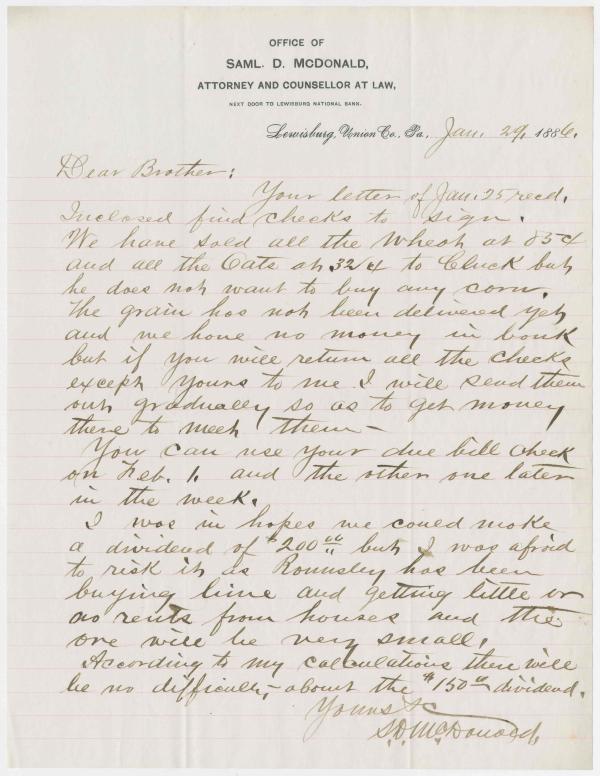 OFFICE OF
SAML. D. McDONALD,
ATTORNEY AND COUNSELLOR AT LAW,
NEXT DOOR TO LEWISBURG NATIONAL BANK.
Lewisburg, Union Co., Pa., Jan. 29, 1886.
Dear Brother:
Your letter of Jan. 25 recd.
Inclosed find checks to sign.
We have sold all the wheat at 85¢
and all the Oats at 32¢ to Cluck but
he does not want to buy any corn.
The grain has not been delivered yet
and we have no money in bank
but if you will return all the checks
except yours to me I will send them
out gradually so as to get money
there to meet them—
You can use your due bill check
on Feb. 1. and the other one later
in the week.
I was in hopes we could make
a dividend of $200.00 but I was afraid
to risk it as has been
buying lime and getting little or
no rents from houses and the
ore will be very small.
According to my calculations there will
be no difficulty about the $150.00 dividend.
Yours &c
S.D. McDonald,